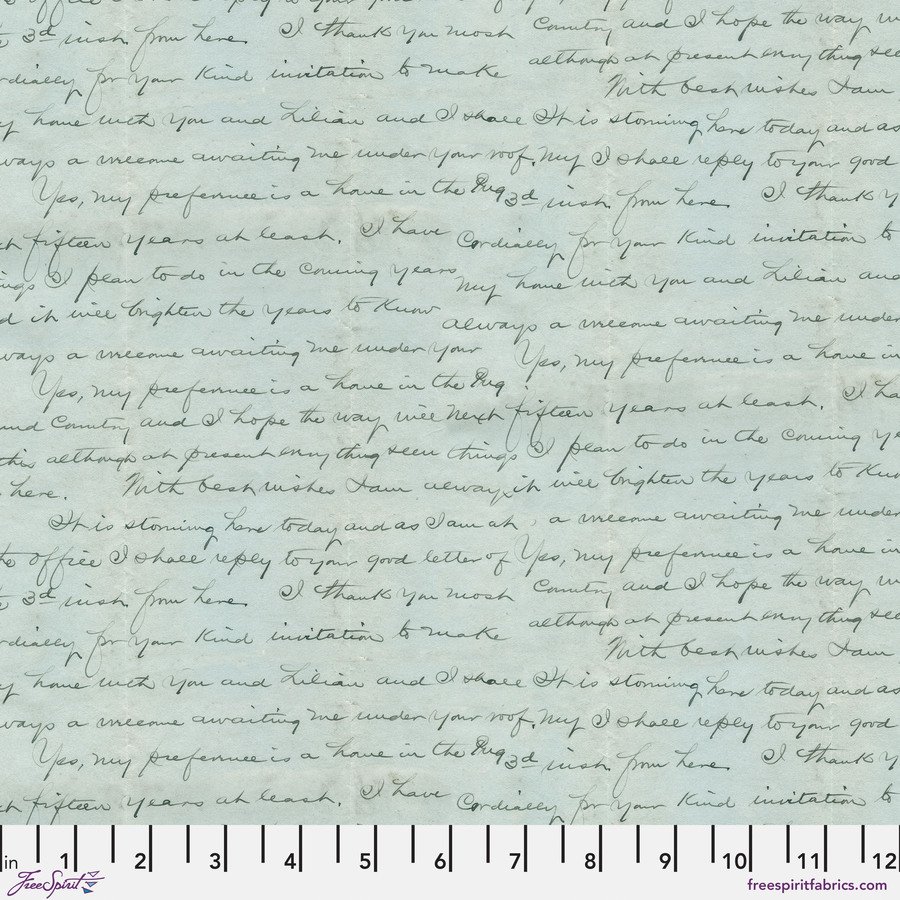 office I shall reply to your good
3d inst. from here. I thank you most Country and I hope the way
cordially for your kind invitation to make although at present everything
With best wishes I am
my home with you and Lilian and I shall It is storming here today and as
always a welcome awaiting me under your roof. My I shall reply to your good
Yes, my preference is a home in the 3d inst. from here I thank
next fifteen years at least. I have Cordially for your kind invitation to
things I plan to do in the coming years my home with you and Lilian and
and it will brighten the years to know always a welcome awaiting me under
always a welcome awaiting me under your Yes, my preference is a home in
Yes, my preference is a home in the
and Country and I hope the way will next fifteen years at least. I have
this although at present everything seen things I plan to do in the coming
here. With best wishes I am always it will brighten the years to know
It is storming here today and as I am at a welcome awaiting me under
the office I shall reply to your good letter of Yes, my preference is a home in
3d inst. from here I thank you most Country and I hope the way
cordially for your kind invitation to make although at present everything
With best wishes I am
my home with you and Lilian and I shall It is storming here today and as
always a welcome awaiting me under your roof. My I shall reply to your good
Yes, my preference is a home in the 3d inst. from here I thank
next fifteen years at least. I have Cordially for your kind invitation to
in 1 2 3 4 5 6 7 8 9 10 11 12
FreeSpirit
freespiritfabrics.com